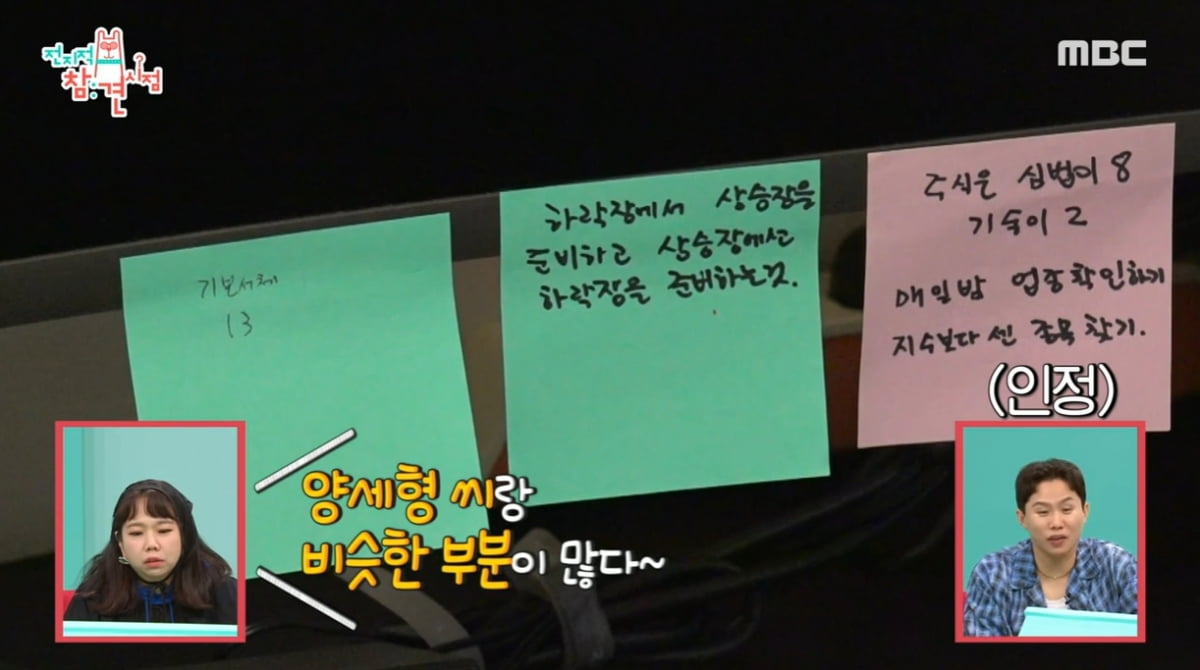 전지적
참견
시점
MBC
기본서체
13
하락장에서 상승장을
준비하고 상승장에선
하락장을 준비하는것.
주식은 심법이 8
기술이 2
매일밤 업종확인하기
지수보다 센 종목 찾기.
(인정)
양세형 씨랑
비슷한 부분이 많다~